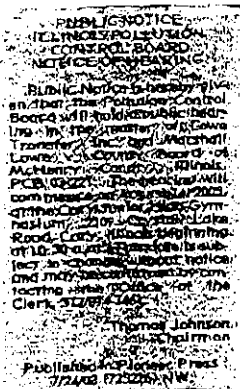 PUBLIC NOTICE
ILLINOIS POLLUTION
CONTROL BOARD
NOTICE OF HEARING
Public Notice is hereby giv-
en that the Pollution Control
Board will hold a public hear-
ing in the matter of Lowe
Transfer, Inc. and Marshall
Lowe v. County Board of
McHenry County, Illinois,
PCB 03-221. The hearing will
commence 2003,
at the Gym-
nasium, Lake
Road, Cary, Illinois beginning
at 10:30 a.m. The date is sub-
ject to change without notice
and may be confirmed by con-
tacting the office of the
Clerk,
Thomas Johnson
Chairman
Published in Pioneer Press
7/24/03 NW